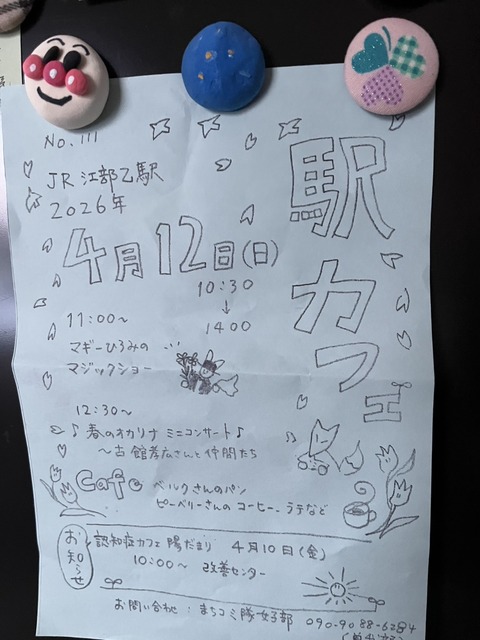 No. 111
駅カフェ
JR 江部乙駅
2026年
4月12日(日)
10:30
↓
1400
11:00~
マギーひろみの
マジックショー
12:30~
♪ 春のオカリナ ミニコンサート♪
~古舘孝広さんと仲間たち
Cafe
ベルクさんのパン
ピーベリーさんの コーヒー、ラテなど
お知らせ
認知症カフェ 陽だまり 4月10日(金)
10:00~ 改善センター
お問い合わせ:まちコミ隊女子部 090-9088-6284